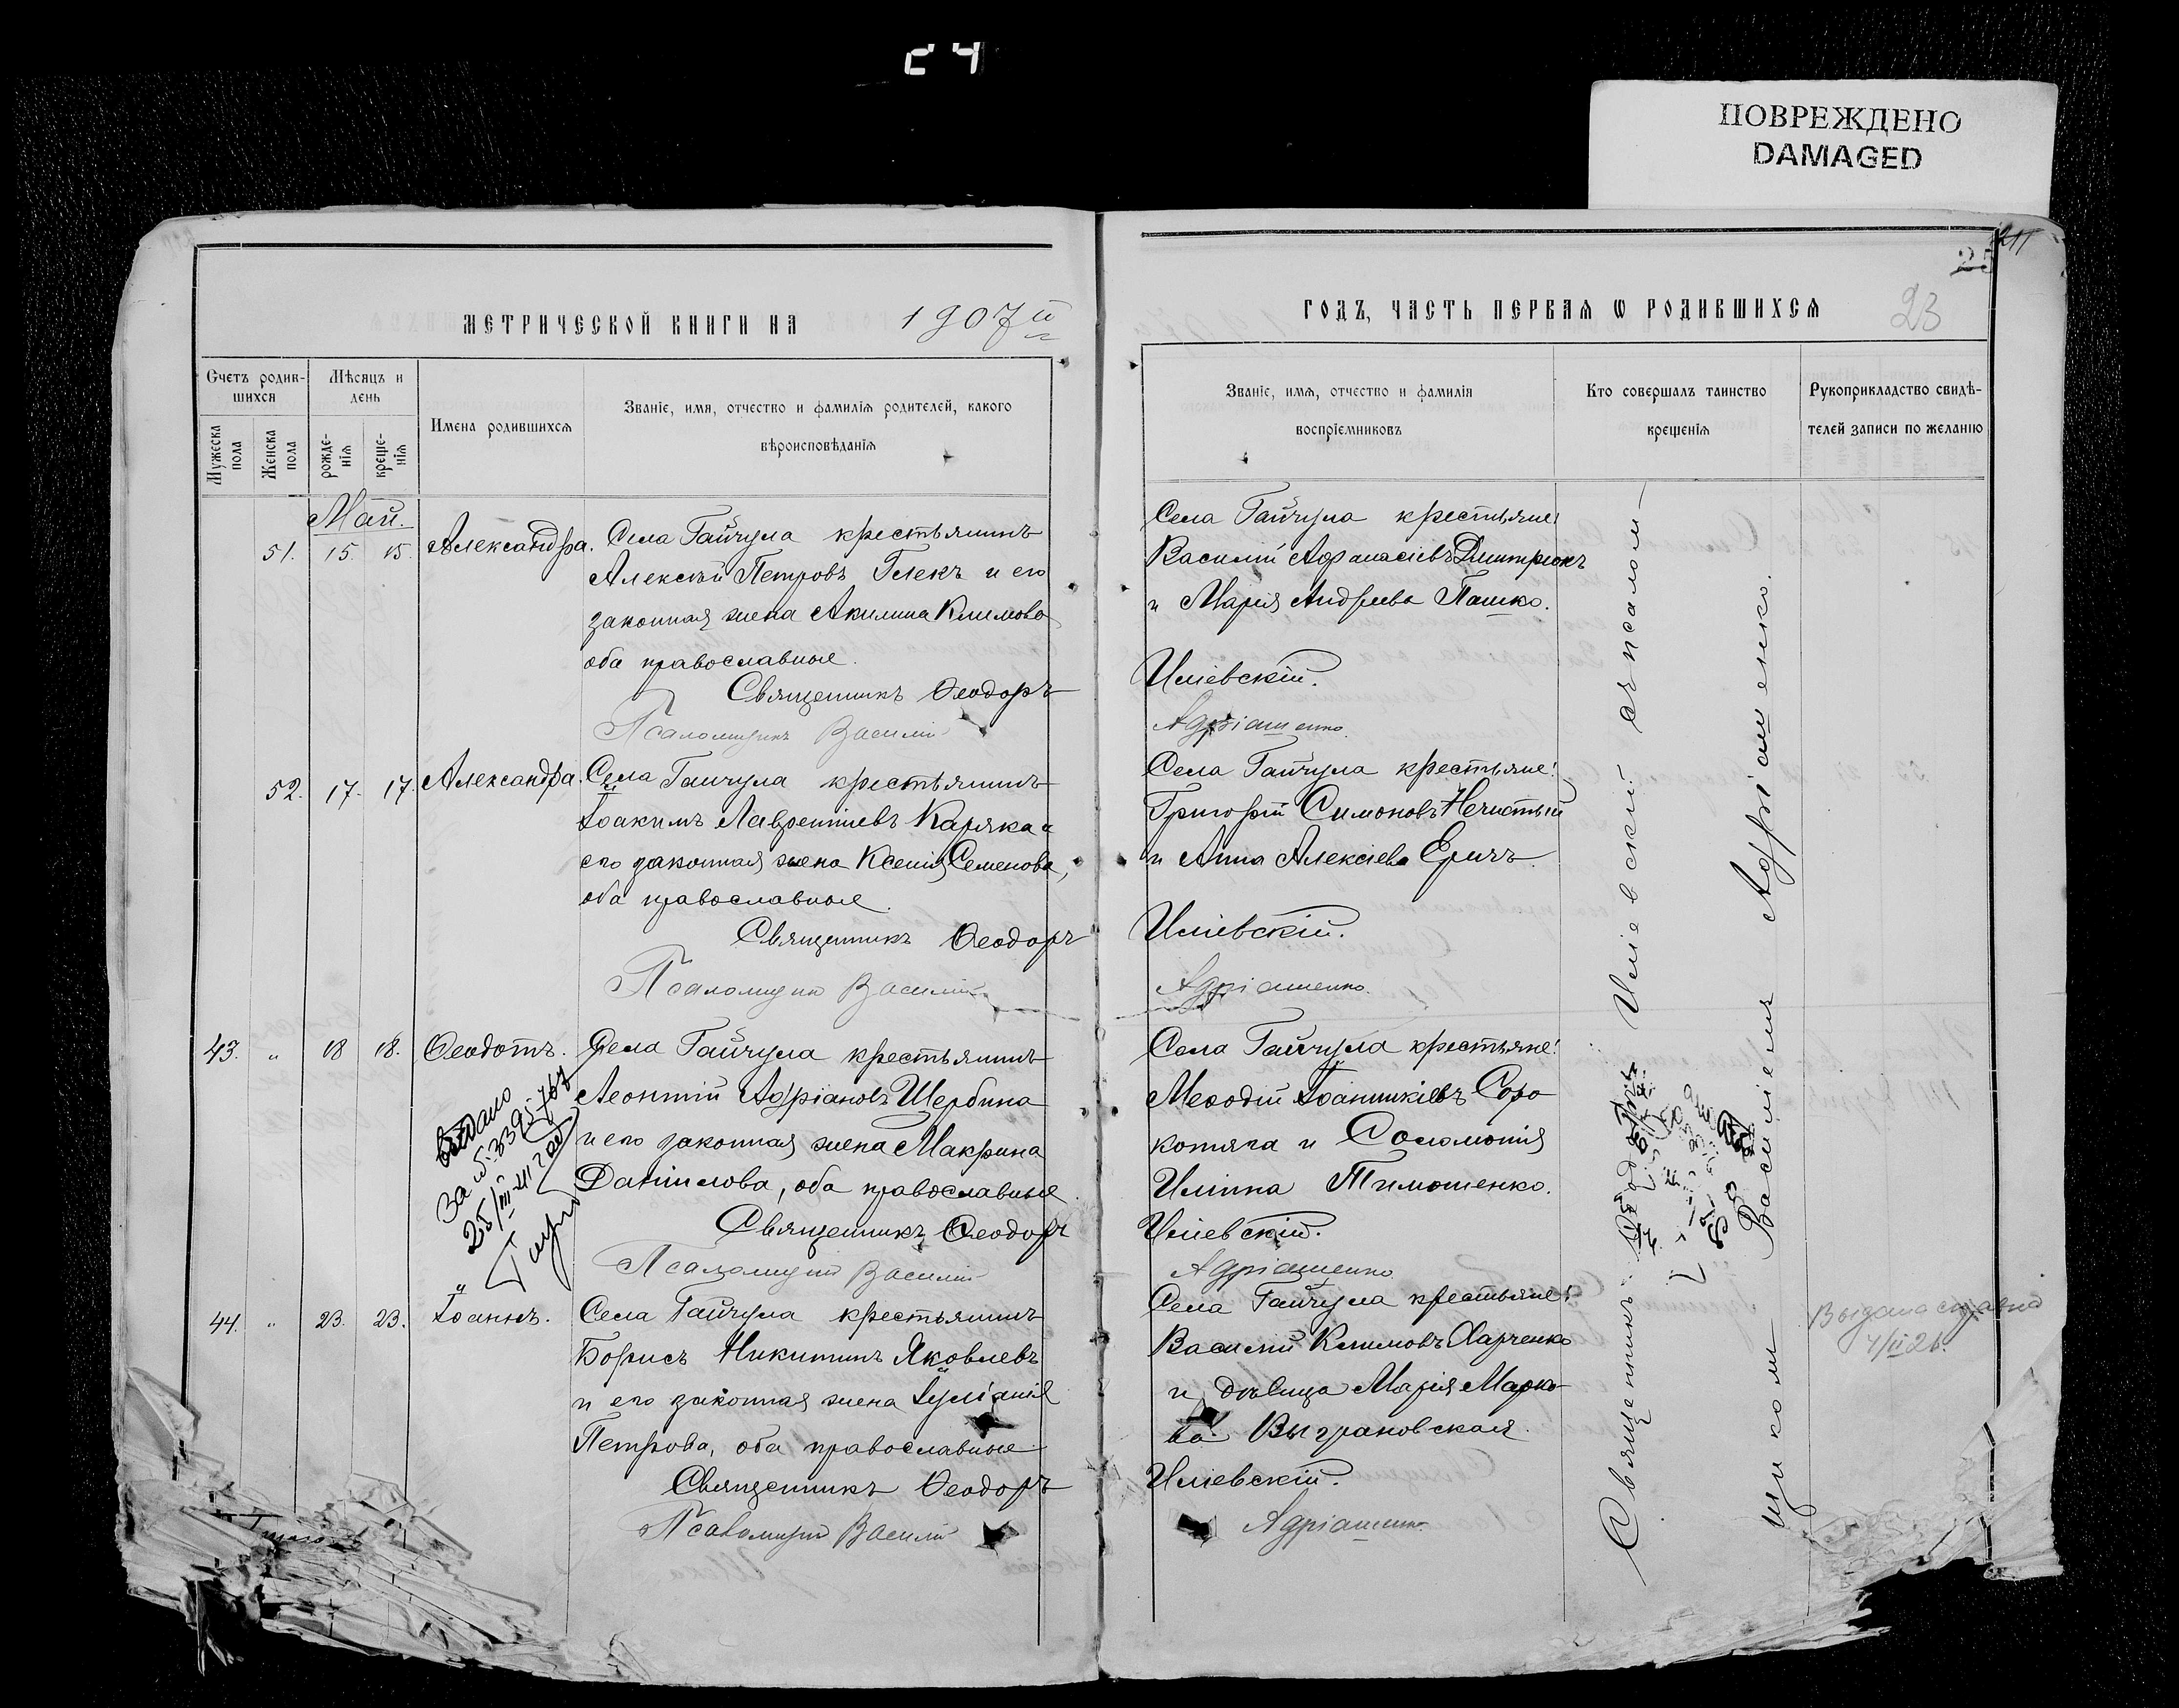 24
ПОВРЕЖДЕНО
DAMAGED
211
25
23
МЕТРИЧЕСКОЙ КНИГИ НА 1907й
Счетъ родив-
шихся
Мѣсяцъ и
день
Мужеска
пола
Женска
пола
рожде-
нія
креще-
нія
Имена родившихся
Званіе, имя, отчество и фамилія родителей, какого
вѣроисповѣданія
Май.
51. 15. 15. Александра. Села Гайчула крестьянинъ
Алексѣй Петровъ Глекъ и его
законная жена Акилина Климова
оба православные.
Священникъ Ѳеодоръ
Псаломщикъ Василій
52. 17. 17. Александра. Села Гайчула крестьянинъ
Іоакимъ Лаврентіевъ Каряка и
его законная жена Ксенія Семенова,
оба православные.
Священникъ Ѳеодоръ
Псаломщикъ Василій
43. " 18 18. Ѳеодотъ. Села Гайчула крестьянинъ
Леонтій Адріановъ Щербина
и его законная жена Макрина
Даніилова, оба православные.
Священникъ Ѳеодоръ
Псаломщикъ Василій
Видано
За №
25/III-41
44. " 23. 23. Іоаннъ. Села Гайчула крестьянинъ
Борисъ Никитинъ Яковлевъ
и его законная жена Іуліанія
Петрова, оба православные.
Священникъ Ѳеодоръ
Псаломщикъ Василій
ГОДЪ, ЧАСТЬ ПЕРВАЯ Ѡ РОДИВШИХСЯ
Званіе, имя, отчество и фамилія
воспріемниковъ
Кто совершалъ таинство
крещенія
Рукоприкладство свидѣ-
телей записи по желанію
Села Гайчула крестьяне:
Василій Афанасіевъ Дмитрюкъ
и Марія Андреева Пашко.
Иліевскій.
Адріашенко.
Села Гайчула крестьяне:
Григорій Симоновъ Нечистый
и Анна Алексіева Еричъ.
Иліевскій.
Адріашенко.
Села Гайчула крестьяне:
Меѳодій Іоанникіевъ Соро
котяга и Соломонія
Иліина Тимошенко.
Иліевскій.
Адріашенко
Села Гайчула крестьяне:
Василій Климовъ Харченко
и дѣвица Марія Марко
ва Выграновская.
Иліевскій.
Адріашенко
Священникъ Ѳеодоръ Иліевскій съ псалом-
щикомъ Василіемъ Адріашенко.
Выдана справка
4/II 26.